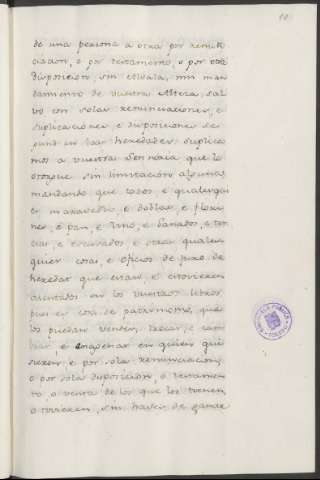 10
de una persona a otra por renun
ciacion, o por testamento, o por otra
disposicion, sin cedula, nin man
damiento de vuestra Alteza, sal
vo con solas renunciaciones, e
suplicaciones, e disposiciones se
gund en las heredades: suplica
mos a vuestra Sennoria que lo
otorgue sin limitacion alguna
mandando que todos e qualesquier
maravedis, e doblas, e flori
nes, e pan, e vino, e ganados, e ter
cias, e escusados, e otras quales
quier cosas, e oficios de juro de
heredat que estan, e estovieren
asentados en los vuestros libros,
pues es cosa de patrimonio, que
los puedan vender, trocar, e cam
biar, e enagenar en quien qui
sieren, e por sola renunciacion,
e por sola disposicion, o testamen
to, o venta de los que los tienen,
o tovieren, sin haber de ganar
BIBLIOTECA PUBLICA
TOLEDO